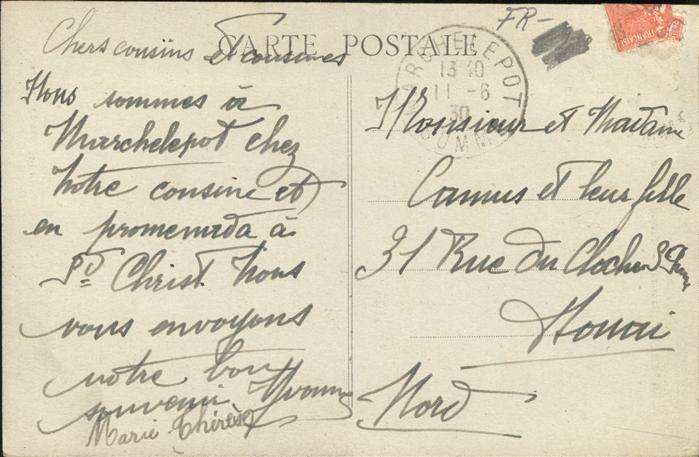 CARTE POSTALE
Chers cousins et cousines
Nous sommes à
Marchelepot chez
notre cousine et
en promenada à
St Christ. Nous
vous envoyons
notre bon
souvenir Yvonne
Marie Thérèse
FR-
MARCHELEPOT
13 40
11 -6
30
SOMME
Monsieur et Madame
Camus et leur fille
31 Rue du Clocher St Pierre
Douai
Nord